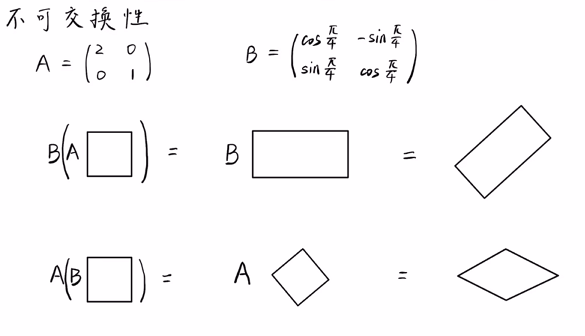 不可交換性
A = (2 0
0 1)
B = (cos π/4 -sin π/4
sin π/4 cos π/4)
B(A ) = B =
A(B ) = A =